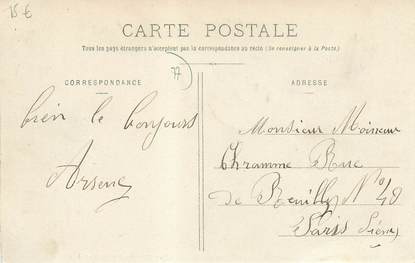 15 €
CARTE POSTALE
Tous les pays étrangers n'acceptent pas la correspondance au recto (Se renseigner à la Poste).
77
CORRESPONDANCE
ADRESSE
bien le bonjours
Arsene
Monsieur
Thramme Rue
de Reuilly No 49
Paris